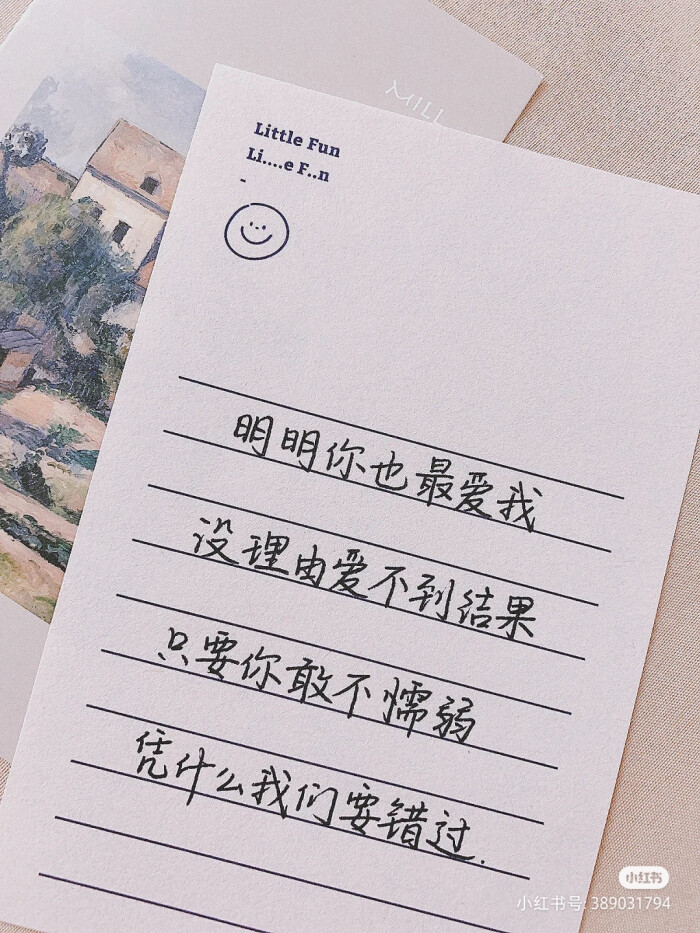 MILL
Little Fun
Li....e F..n
-
明明你也最爱我
没理由爱不到结果
只要你敢不懦弱
凭什么我们要错过.
小红书
小红书号: 389031794